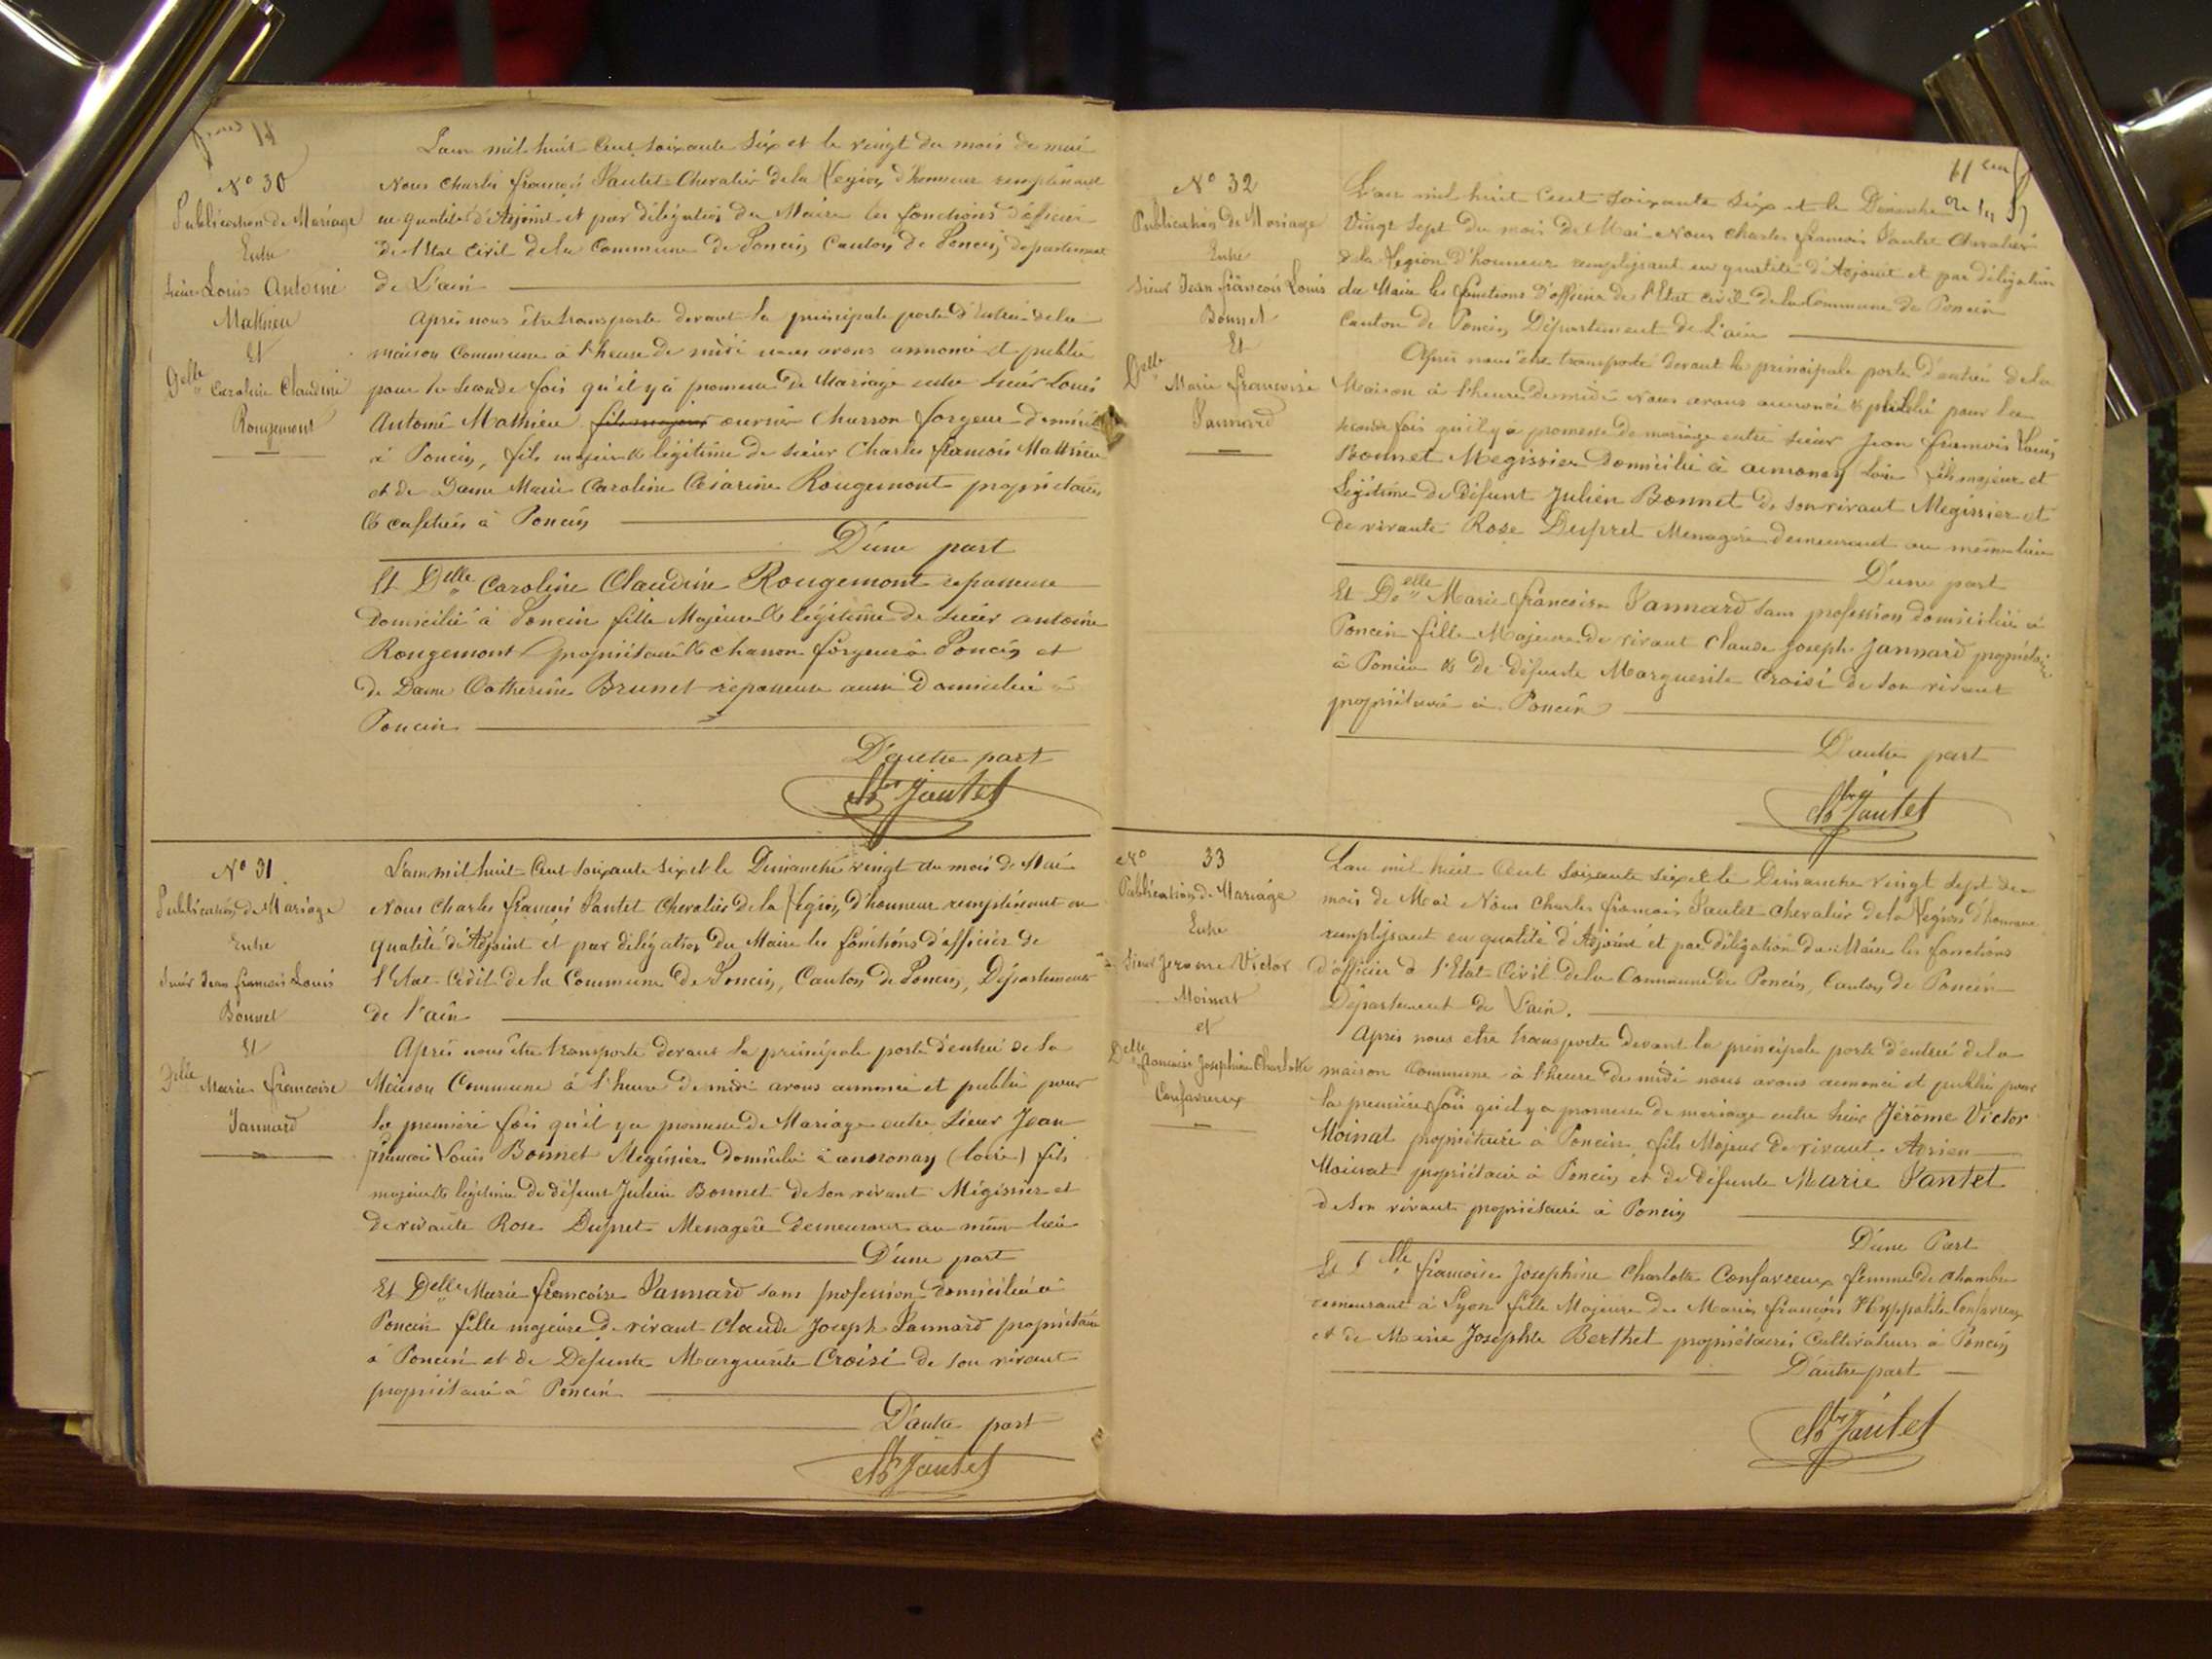 N° 30
Publication de Mariage
Entre
sieur Louis Antoine
Mathieu
Et
Delle Caroline Claudine
Rougemont
L'an mil huit Cent soixante Six et le vingt du mois de mai
Nous Charles françois Jantet Chevalier de la Légion d'honneur remplissant
en qualité d'Adjoint et par délégation du Maire les fonctions d'officier
de l'Etat Civil de la Commune de Poncin Canton de Poncin, département
de L'ain
Après nous être transporté devant la principale porte d'entrée de la
maison Commune à l'heure de midi nous avons annoncé et publié
pour la seconde fois qu'il y a promesse de Mariage entre sieur Louis
Antoine Mathieu fils majeur ouvrier Charron forgeur domicilié
à Poncin, fils majeur & légitime de sieur Charles françois Mathieu
et de Dame Marie Caroline Césarine Rougemont propriétaires
& cafetiers à Poncin
D'une part
Et Delle Caroline Claudine Rougemont repasseuse
Domiciliée à Poncin fille Majeure & légitime de sieur antoine
Rougemont propriétaire & charron forgeur à Poncin et
de Dame Catherine Brunet repasseuse aussi Domiciliée à
Poncin
D'autre part
Ch Jantet
N° 31
Publication de Mariage
Entre
Sieur Jean françois Louis
Bonnet
Et
Delle Marie francoise
Jannard
L'an mil huit Cent soixante six et le Dimanche vingt du mois de Mai
Nous Charles françois Jantet Chevalier de la Légion d'honneur remplissant en
qualité d'Adjoint et par délégation du Maire les fonctions d'officier de
l'Etat Civil de la Commune de Poncin, Canton de Poncin, Département
de l'ain
Après nous être transporté devant la principale porte d'entrée de la
Maison Commune à l'heure de midi avons annoncé et publié pour
la première fois qu'il y a promesse de Mariage entre Sieur Jean
François Louis Bonnet Mégissier domicilié à annonay (loire) fils
majeur & légitime de défunt Julien Bonnet de son vivant Mégissier et
de vivante Rose Dupret Menagère demeurant au même lieu
D'une part
Et Delle Marie françoise Jannard sans profession domiciliée à
Poncin fille majeure de vivant Claude Joseph Jannard propriétaire
à Poncin et de Défunte Marguerite Croisi de son vivant
propriétaire à Poncin
D'autre part
Ch Jantet
N° 32
Publication de Mariage
Entre
Sieur Jean françois Louis
Bonnet
Et
Delle
Marie françoise
Jannard
L'an mil huit Cent soixante Six et le Dimanche
Vingt Sept du mois de Mai Nous Charles francois Jantet Chevalier
de la Légion d'honneur remplissant en qualité d'Adjoint et par délégation
du Maire les fonctions d'officier de l'Etat civil de la Commune de Poncin
Canton de Poncin Département de L'ain
Après nous être transporté devant la principale porte d'entrée de la
Maison à l'heure de midi Nous avons annoncé & publié pour la
seconde fois qu'il y a promesse de mariage entre sieur Jean francois Louis
Bonnet Megissier Domicilié à annonay Loire fils majeur et
Légitime de Défunt Julien Bonnet de son vivant Megissier et
de vivante Rose Dupret Menagère demeurant au même lieu
D'une part
Et Delle Marie françoise Jannard sans profession domiciliée à
Poncin fille Majeure de vivant Claude Joseph Jannard propriétaire
à Poncin & de défunte Marguerite Croisi de son vivant
propriétaire à Poncin
D'autre part
Ch Jantet
N° 33
Publication de Mariage
Entre
Sieur Jerome Victor
Moinat
et
Delle françoise Josephine Charlotte
Confavreux
L'an mil huit Cent soixante six et le Dimanche vingt sept du
mois de Mai Nous Charles francois Jantet chevalier de la Légion d'honneur
remplissant en qualité d'Adjoint et par délégation du Maire les fonctions
d'officier d l'Etat Civil de la Commune de Poncin, Canton de Poncin
Département de L'ain.
Après nous etre transporté devant la principale porte d'entrée de la
maison Commune à l'heure de midi nous avons annoncé et publié pour
la première fois qu'il y a promesse de mariage entre Sieur Jérôme Victor
Moinat propriétaire à Poncin, fils Majeur de vivant Adrien
Moinat propriétaire à Poncin et de défunte Marie Jantet
de son vivant propriétaire à Poncin
D'une Part
Et Delle françoise Josephine Charlotte Confavreux femme de chambre
demeurant à Lyon fille Majeure de Marin françois Hyppolite Confavreux
et de Marie Josephte Berthet propriétaires Cultivateurs à Poncin
D'autre part
Ch Jantet